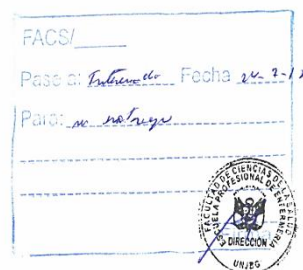 FACS/____
Pase a: Interesado Fecha 24-2-1
Para: su entrega
FACULTAD DE CIENCIAS DE LA SALUD
ESCUELA PROFESIONAL DE ENFERMERÍA
DIRECCIÓN
UNJBG